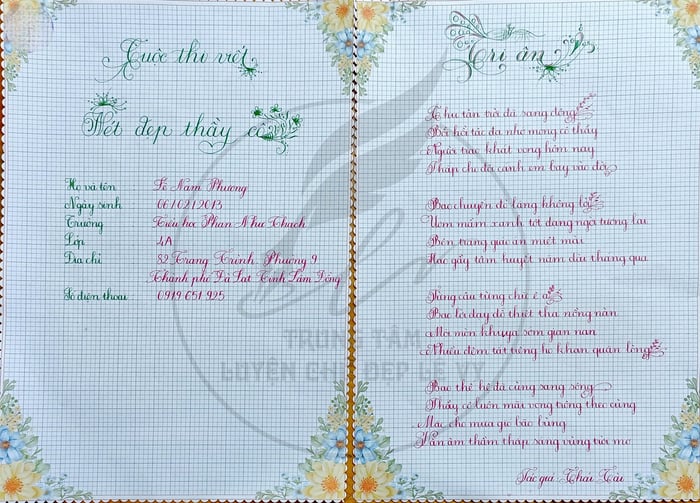 Cuộc thi viết
Nét đẹp thầy cô
Họ và tên : Lê Nam Phương
Ngày sinh : 06/02/2013
Trường : Tiểu học Phan Như Thạch
Lớp : 4A
Địa chỉ : 82 Trạng Trình, Phường 9
Thành phố Đà Lạt Tỉnh Lâm Đồng
Số điện thoại : 0919 651 925
Tri ân
Thu tàn trời đã sang đông
Bồi hồi tấc dạ nhớ mong cô thầy
Người trao khát vọng hôm nay
Thắp cho đôi cánh em bay vào đời
Bao chuyến đò lặng không lời
Ươm mầm xanh tốt dạng ngời tương lai
Bên trang giáo án miệt mài
Hao gầy tâm huyết năm dài tháng qua
Từng câu từng chữ ê a
Bao lời dạy dỗ thiết tha nồng nàn
Mỏi mòn khuya sớm gian nan
Nhiều đêm tất tiếng ho khan quặn lòng
Bao thế hệ đã cùng sang sông
Thầy cô luôn mãi vọng trông theo cùng
Mặc cho mưa gió bão bùng
Vẫn âm thầm thắp sáng vùng trời mơ
Tác giả Thái Tài
TRUNG TÂM
LUYỆN CHỮ ĐẸP LÊ VY